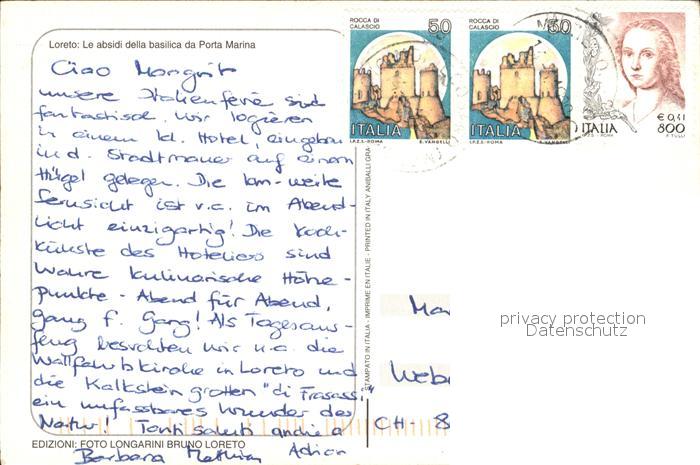 Loreto: Le absidi della basilica da Porta Marina
Ciao Margrit
unsere Italienferie sind
fantastisch. Wir logieren
in einem kl. Hotel, eingebau
in d. Stadtmauer auf einem
Hügel gelegen. Die km-weite
Fernsicht ist v.a. im Abend-
licht einzigartig! Die Koch-
künste des Hoteliers sind
wahre kulinarische Höhe-
punkte - Abend für Abend,
gang f. Gang! Als Tagesaus-
flug besuchten wir u.a. die
Wallfahrtskirche in Loreto und
die Kalksteingrotten "di Frasassi"
ein unfassbares Wunder der
Natur! Tanti saluti anche a
Barbara Mathias Adrian
EDIZIONI: FOTO LONGARINI BRUNO LORETO
STAMPATO IN ITALIA - IMPRIME EN ITALIE - PRINTED IN ITALY ANIBALLI GRA
ROCCA DI
CALASCIO
50
ITALIA
I.P.Z.S.-ROMA E. VANGELLI
ROCCA DI
CALASCIO
50
ITALIA
I.P.Z.S.-ROMA E. VANGELLI
€ 0,41
ITALIA 800
I.P.Z.S. - ROMA F. TULLI
Ma
Webe
CH- 8
privacy protection
Datenschutz